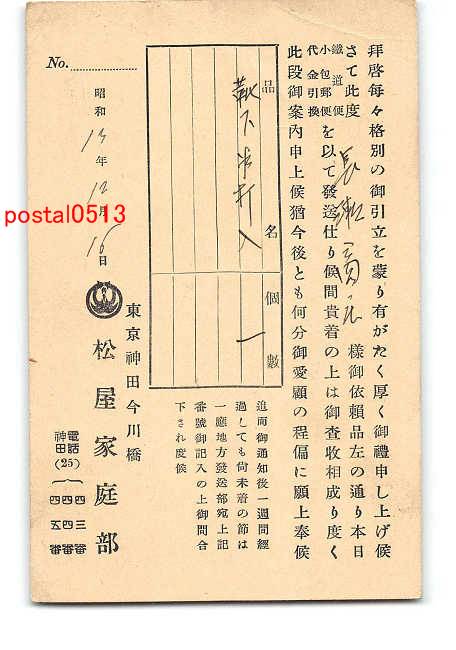 拜啓每々格別の御引立を蒙り有がたく厚く御禮申し上げ候
さて此度 長瀬 様御依賴品左の通り本日
鐵道便
小包郵便
代金引換
を以て發送仕り候間貴着の上は御查收相成り度く
此段御案內申上候猶今後とも何分御愛顧の程偏に願上奉候
品名 個數
靴下半打入 一
追而御通知後一週間經
過しても尙未着の節は
一應地方發送部宛上記
番號御記入の上御問合
下され度候
No.
昭和13年12月16日
東京神田今川橋
松屋家庭部
電話神田(25)
四三番
四四番
四五番
postal0513